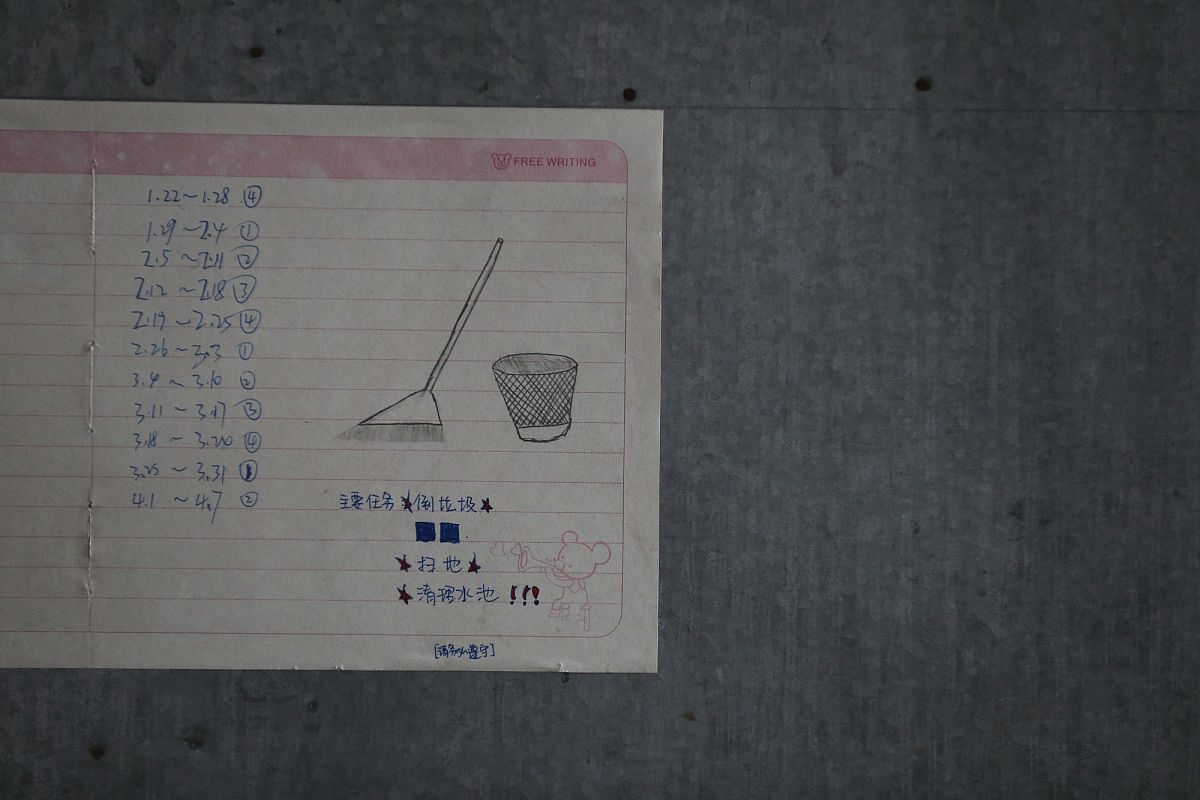 FREE WRITING
1.22~1.28 ④
1.29~2.4 ①
2.5~2.11 ②
2.12~2.18 ③
2.19~2.25 ④
2.26~3.3 ①
3.4~3.10 ②
3.11~3.17 ③
3.18~ ④
3.25~3.31 ①
4.1~4.7 ②
主要任务★倒垃圾★
★扫地★
★清理水池!!!
[请务必遵守]